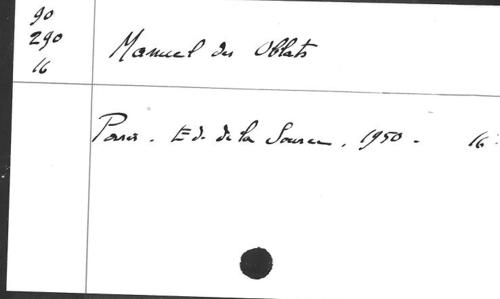 90
290
16
Manuel des Oblats
Paris. Ed. de la Source, 1950. 16°